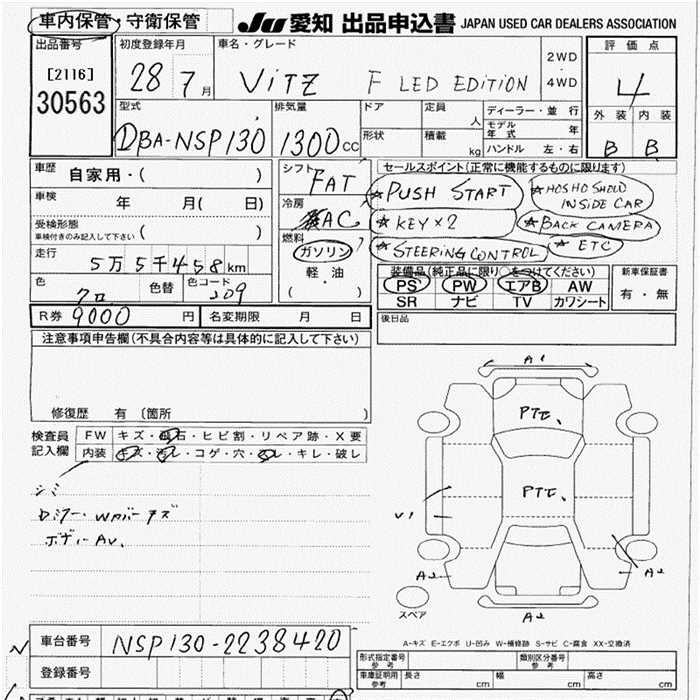 車内保管・守衛保管
JU 愛知 出品申込書 JAPAN USED CAR DEALERS ASSOCIATION
出品番号
[2116]
30563
初度登録年月
28年7月
車名・グレード
ViTZ F LED EDITION
2WD
・
4WD
評価点
4
外装 内装
B B
型式
DBA-NSP130
排気量
1300cc
ドア
定員
人
形状
積載
kg
ディーラー・並行
モデル年式 年
ハンドル 左・右
車歴
自家用・( )
車検 年 月( 日)
受検形態
車検付きのみ記入して下さい ( )
走行
5万5千458km
色
クロ
色替
色コード
209
シフト
FAT
冷房
AC
燃料
ガソリン
軽・油
( )
セールスポイント(正常に機能するものに限ります)
★PUSH START
★HOSHO SHOLO INSIDE CAR
★KEY×2
★BACK CAMERA
★STEERING CONTROL
★ETC
装備品(純正品に限り○をつけてください)
PS PW エアB AW
SR ナビ TV カワシート
新車保証書
有・無
R券 9000円
名変期限 月 日
後日品
注意事項申告欄(不具合内容等は具体的に記入して下さい)
修復歴 有〔箇所 〕
検査員
記入欄
FW キズ・飛石・ヒビ割・リペア跡・X要
内装 キズ・汚レ・コゲ・穴・スレ・キレ・破レ
シミ
Dミラー・Wカバーキズ
ボディーAU、
A1
PTモ、
PTモ、
U1
A2
A2
A2
スペア
A-キズ E-エクボ U-凹み W-補修跡 S-サビ C-腐食 XX-交換済
車台番号 NSP130-2238420
登録番号
形式指定番号
参考
類別区分番号
参考
車庫証明用
参考
長さ cm 幅 cm 高さ cm